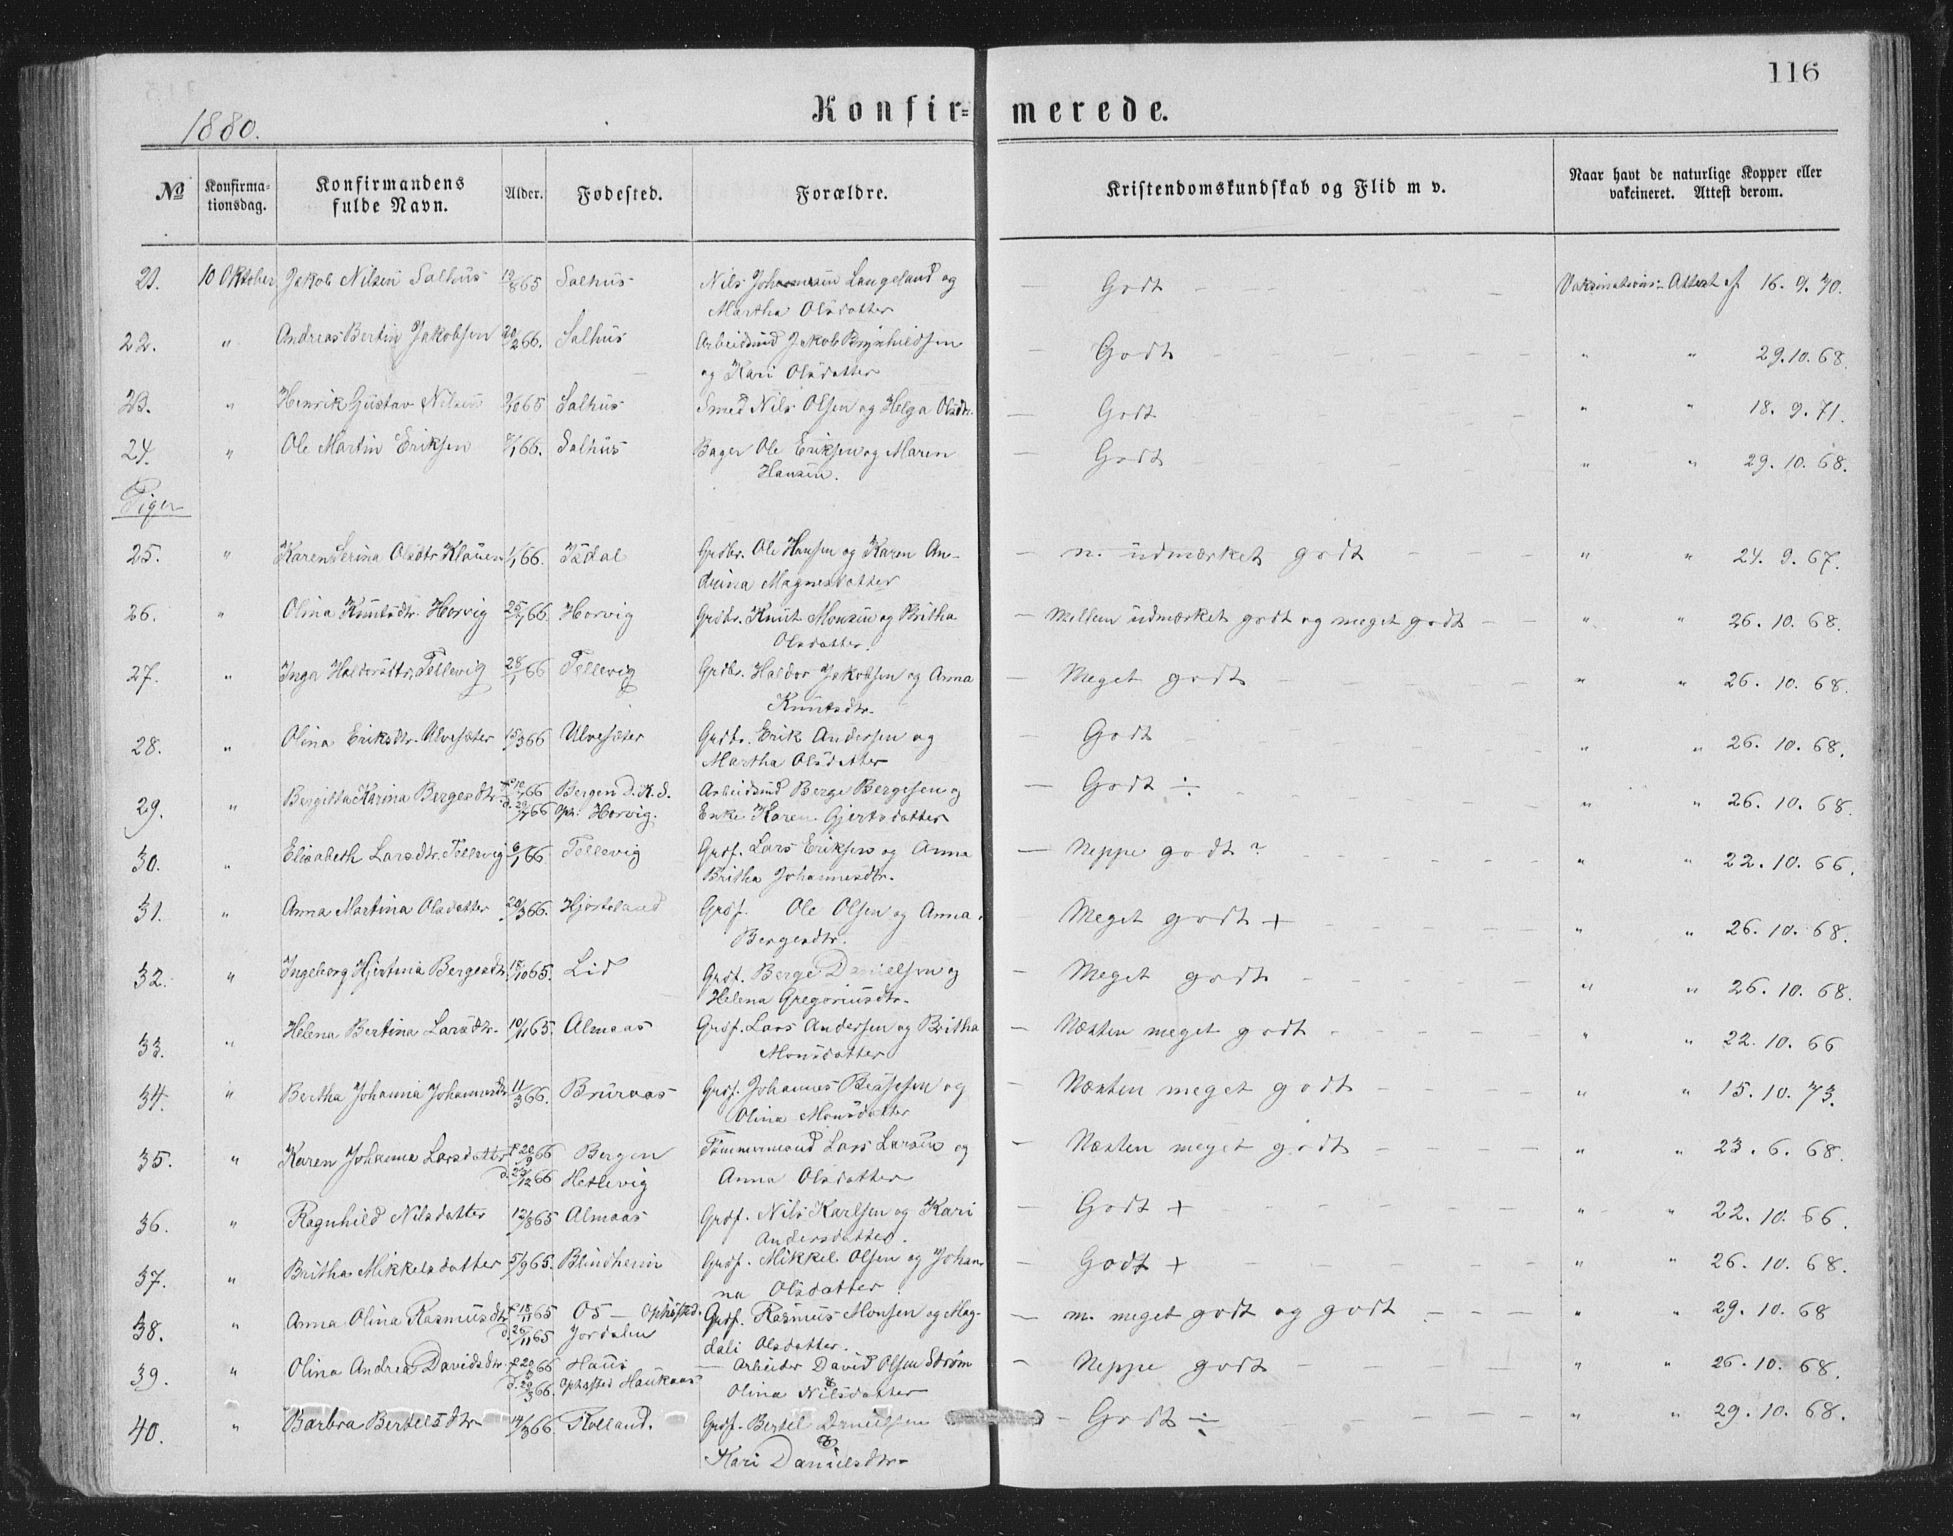 116
Konfir= merede.
1880.
No Konfirma= tionsdag. Konfirmandens fulde Navn. Alder. Fodested. Forældre. Kristendomskundskab og Flid m v. Naar havt de naturlige Kopper eller vakcineret. Attest derom.
21. 10 Oktober Jakob Nilsen Salhus 12/865 Salhus Nils Johannesen Langeland og Godt Vaksinations-Attest af 16. 9. 70.
Martha Olsdatter
22. " Andreas Bertin Jakobsen 20/266. Salhus Arbeidsmd Jakob Brynhildsen Godt " " 29.10.68
og Kari Olsdatter
23. " Henrik Gustav Nilsen Salhus Smed Nils Olsen og Helga Olsdtr. Godt " " 18. 9. 71.
24. " Ole Martin Eriksen Salhus Bager Ole Eriksen og Maren Godt " " 29. 10. 68.
Hansen.
Piger
25. " Karen Serina Olsdtr. Klauen 1/166. Grdbr. Ole Hansen og Karen An- n. udmærket godt " " 24. 9. 67.
drina Magnesdatter
26. " Olina Knutsdtr. Horvig Horvig Grdbr. Knut Monsen og Britha Mellem udmærket godt og meget godt " " 26. 10. 68.
Olsdatter.
27. " Inga Haldorsdtr. Tellevig 28/166 Tellevig Grdbr. Haldor Jakobsen og Anna Meget godt " " 26. 10. 68.
Knutsdtr.
28. " Olina Eriksdtr. Ulvesæter 15/366 Ulvesæter Grdbr. Erik Andersen og Godt " " 26. 10. 68.
Martha Olsdatter
29. " Bergitta Karina Bergesdtr. Bergen D. K. S. Arbeidsmd Berge Bergesen og Godt ÷ " " 26. 10. 68.
Oph. Horvig. Enke Karen Gjertsdatter
30. " Elisabeth Larsdtr. Tellevig 6/166 Tellevig Grdf. Lars Eriksen og Anna Neppe godt? " " 22. 10. 66.
Britha Johannesdtr.
31. " Anna Martina Olsdatter 20/366. Hjorteland Grdf. Ole Olsen og Anna Meget godt + " " 26. 10. 68.
Bergesdtr.
32. " Ingeborg Hjertina Bergesdtr. 18/1065. Lid Grdf. Berge Danielsen og Meget godt " " 26. 10. 68.
Helena Gregoriusdtr.
33. " Helena Bertina Larsdtr. 10/1165. Almaas Grdf. Lars Andersen og Britha Næsten meget godt " " 22. 10. 66
Monsdatter
34. " Bertha Johanna Johannesdtr 11/366. Bruraas Grdf. Johannes og Næsten meget godt " " 15. 10. 73.
Olina Monsdatter
35. " Karen Johanna Larsdatter f 20/966 Bergen Tømmermand Lars Larsen og Næsten meget godt " " 23. 6. 68.
d. 23/1266 Hetlevig Anna Olsdatter
36. " Ragnhild Nilsdatter 12/865 Almaas Grdf. Nils Karlsen og Kari Godt + " " 22. 10. 66.
Andersdatter.
37. " Britha Mikkelsdatter 5/965. Blindheim Grdf. Mikkel Olsen og Johan- Godt + " " 26. 10. 68.
na Olsdatter
38. " Anna Olina Rasmusdtr f 18/1165 OS — Ophsted. Grdf. Rasmus Monsen og Mag- m. meget godt og godt " " 29. 10. 68
d. 26/1165 Jordalen dali Olsdatter.
39. " Olina Andrea Davidsdtr. Haus — Arbeider David Olsen Strøm Neppe godt " " 26. 10. 68.
Ophsted Haukaas & Olina Nilsdatter
40. " Barbra Bertelsdtr 14/366 Rolland. Grdf. Bertel Danielsen Godt ÷ " " 29. 10. 68.
& Kari Danielsdtr.